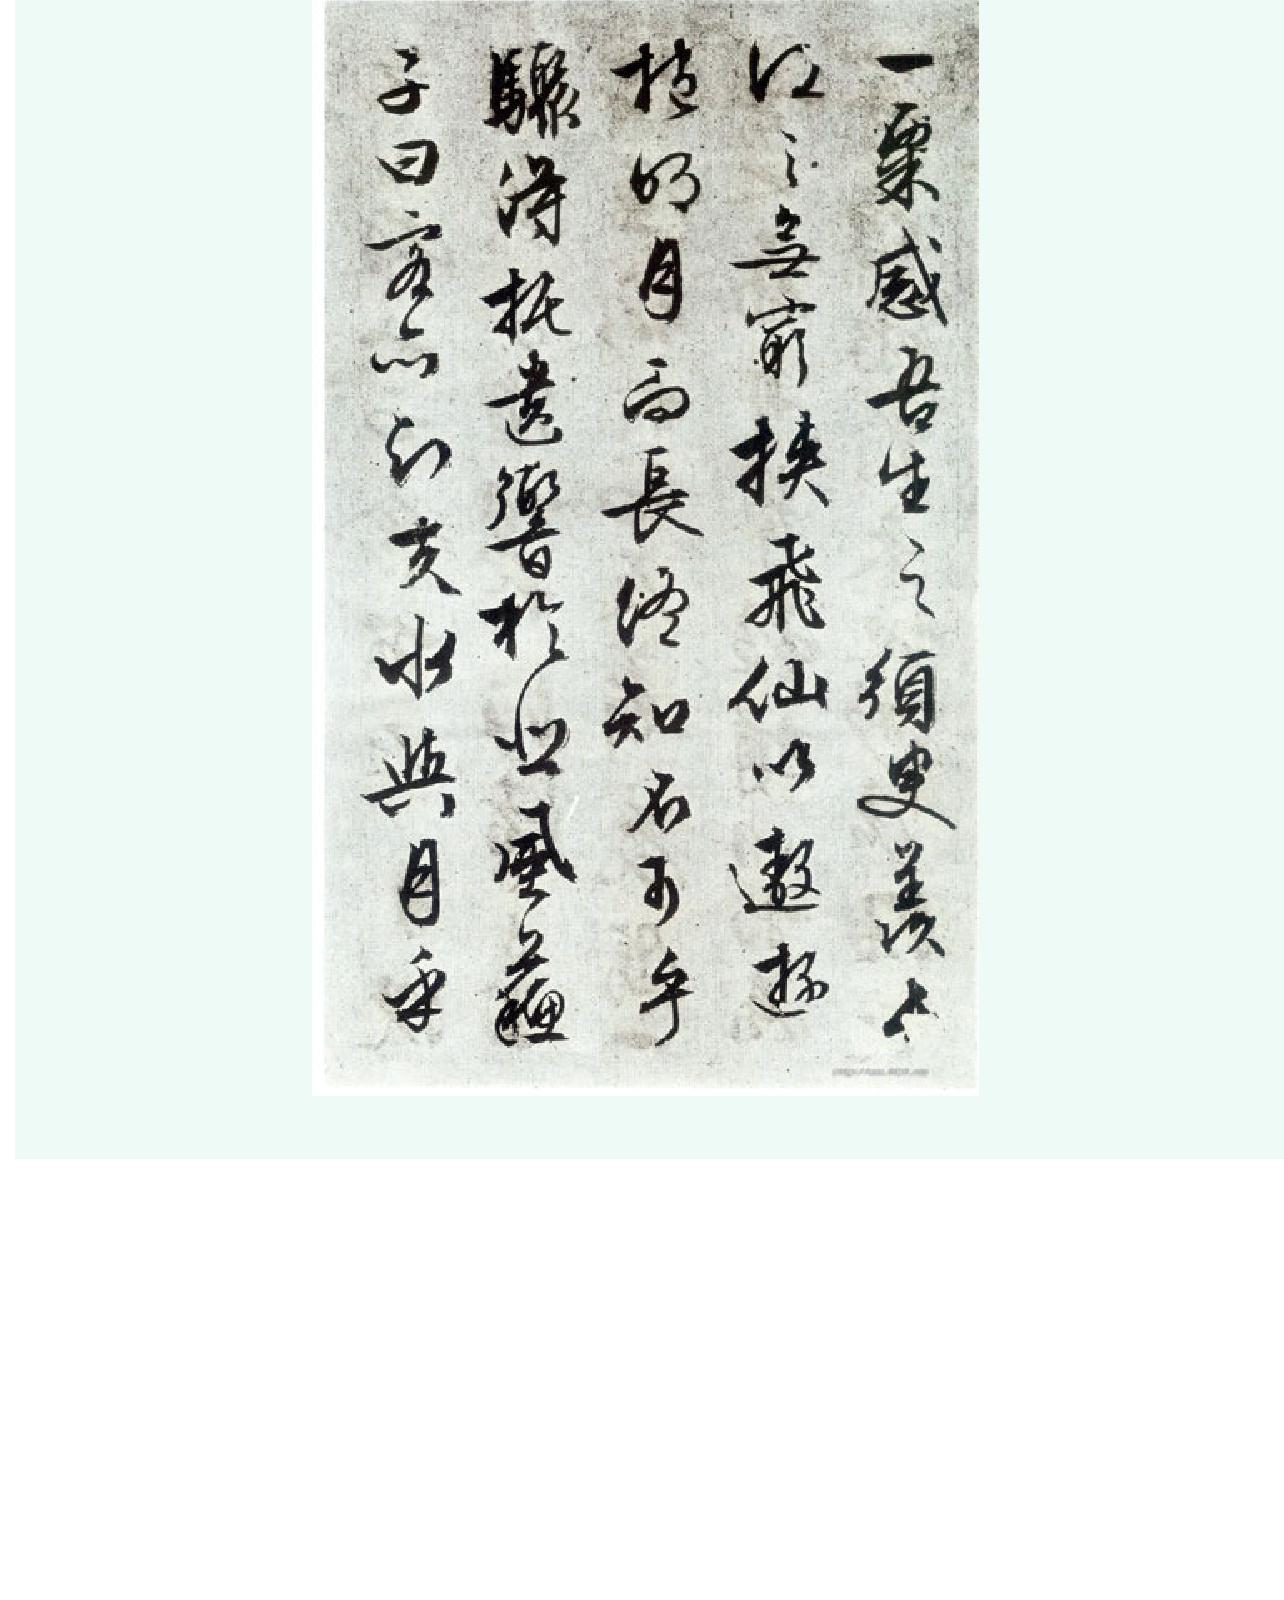 一粟感吾生之須臾羨長
江之無窮挾飛仙以遨遊
抱明月而長終知不可乎
驟得托遺響於悲風蘇
子曰客亦知夫水與月乎